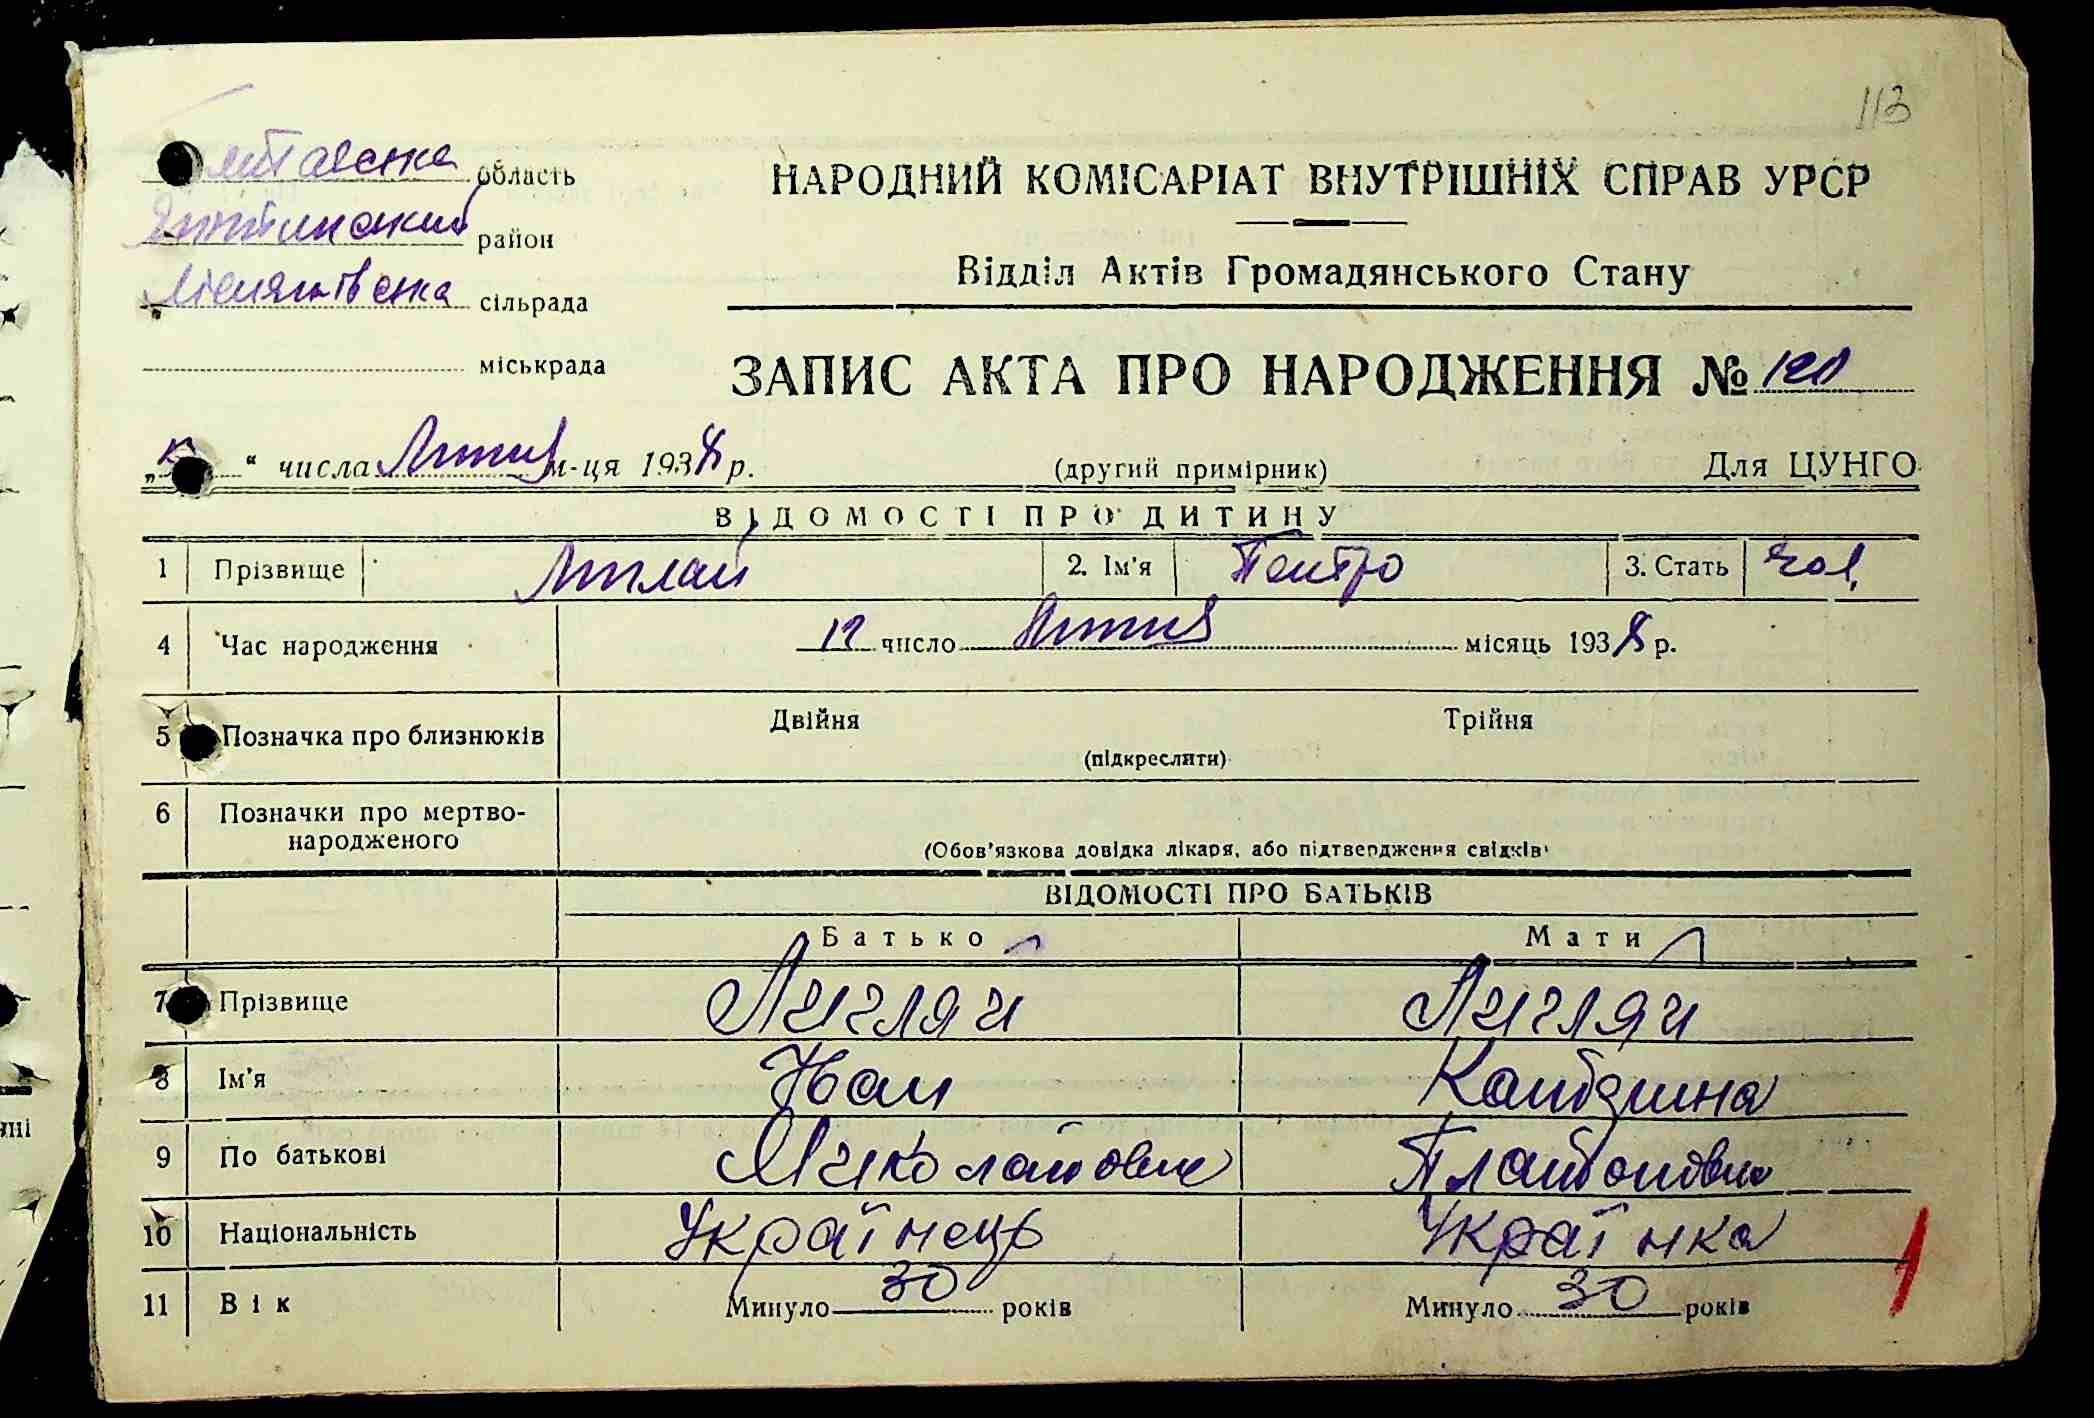 113
Полтавська область
район
сільрада
міськрада
НАРОДНИЙ КОМІСАРІАТ ВНУТРІШНІХ СПРАВ УРСР
Відділ Актів Громадянського Стану
ЗАПИС АКТА ПРО НАРОДЖЕННЯ №
" " числа Липня м-ця 1938 р.
(другий примірник)
Для ЦУНГО
ВІДОМОСТІ ПРО ДИТИНУ
1 Прізвище 2. Ім'я Петро 3. Стать чол.
4 Час народження 12 число Липня місяць 1938 р.
5 Позначка про близнюків Двійня Трійня
(підкреслити)
6 Позначки про мертво-
народженого
(Обов'язкова довідка лікаря, або підтвердження свідків)
ВІДОМОСТІ ПРО БАТЬКІВ
Батько Мати
7 Прізвище
8 Ім'я Іван
9 По батькові Миколайович Платоновна
10 Національність Українець Українка
11 Вік Минуло 30 років Минуло 30 років